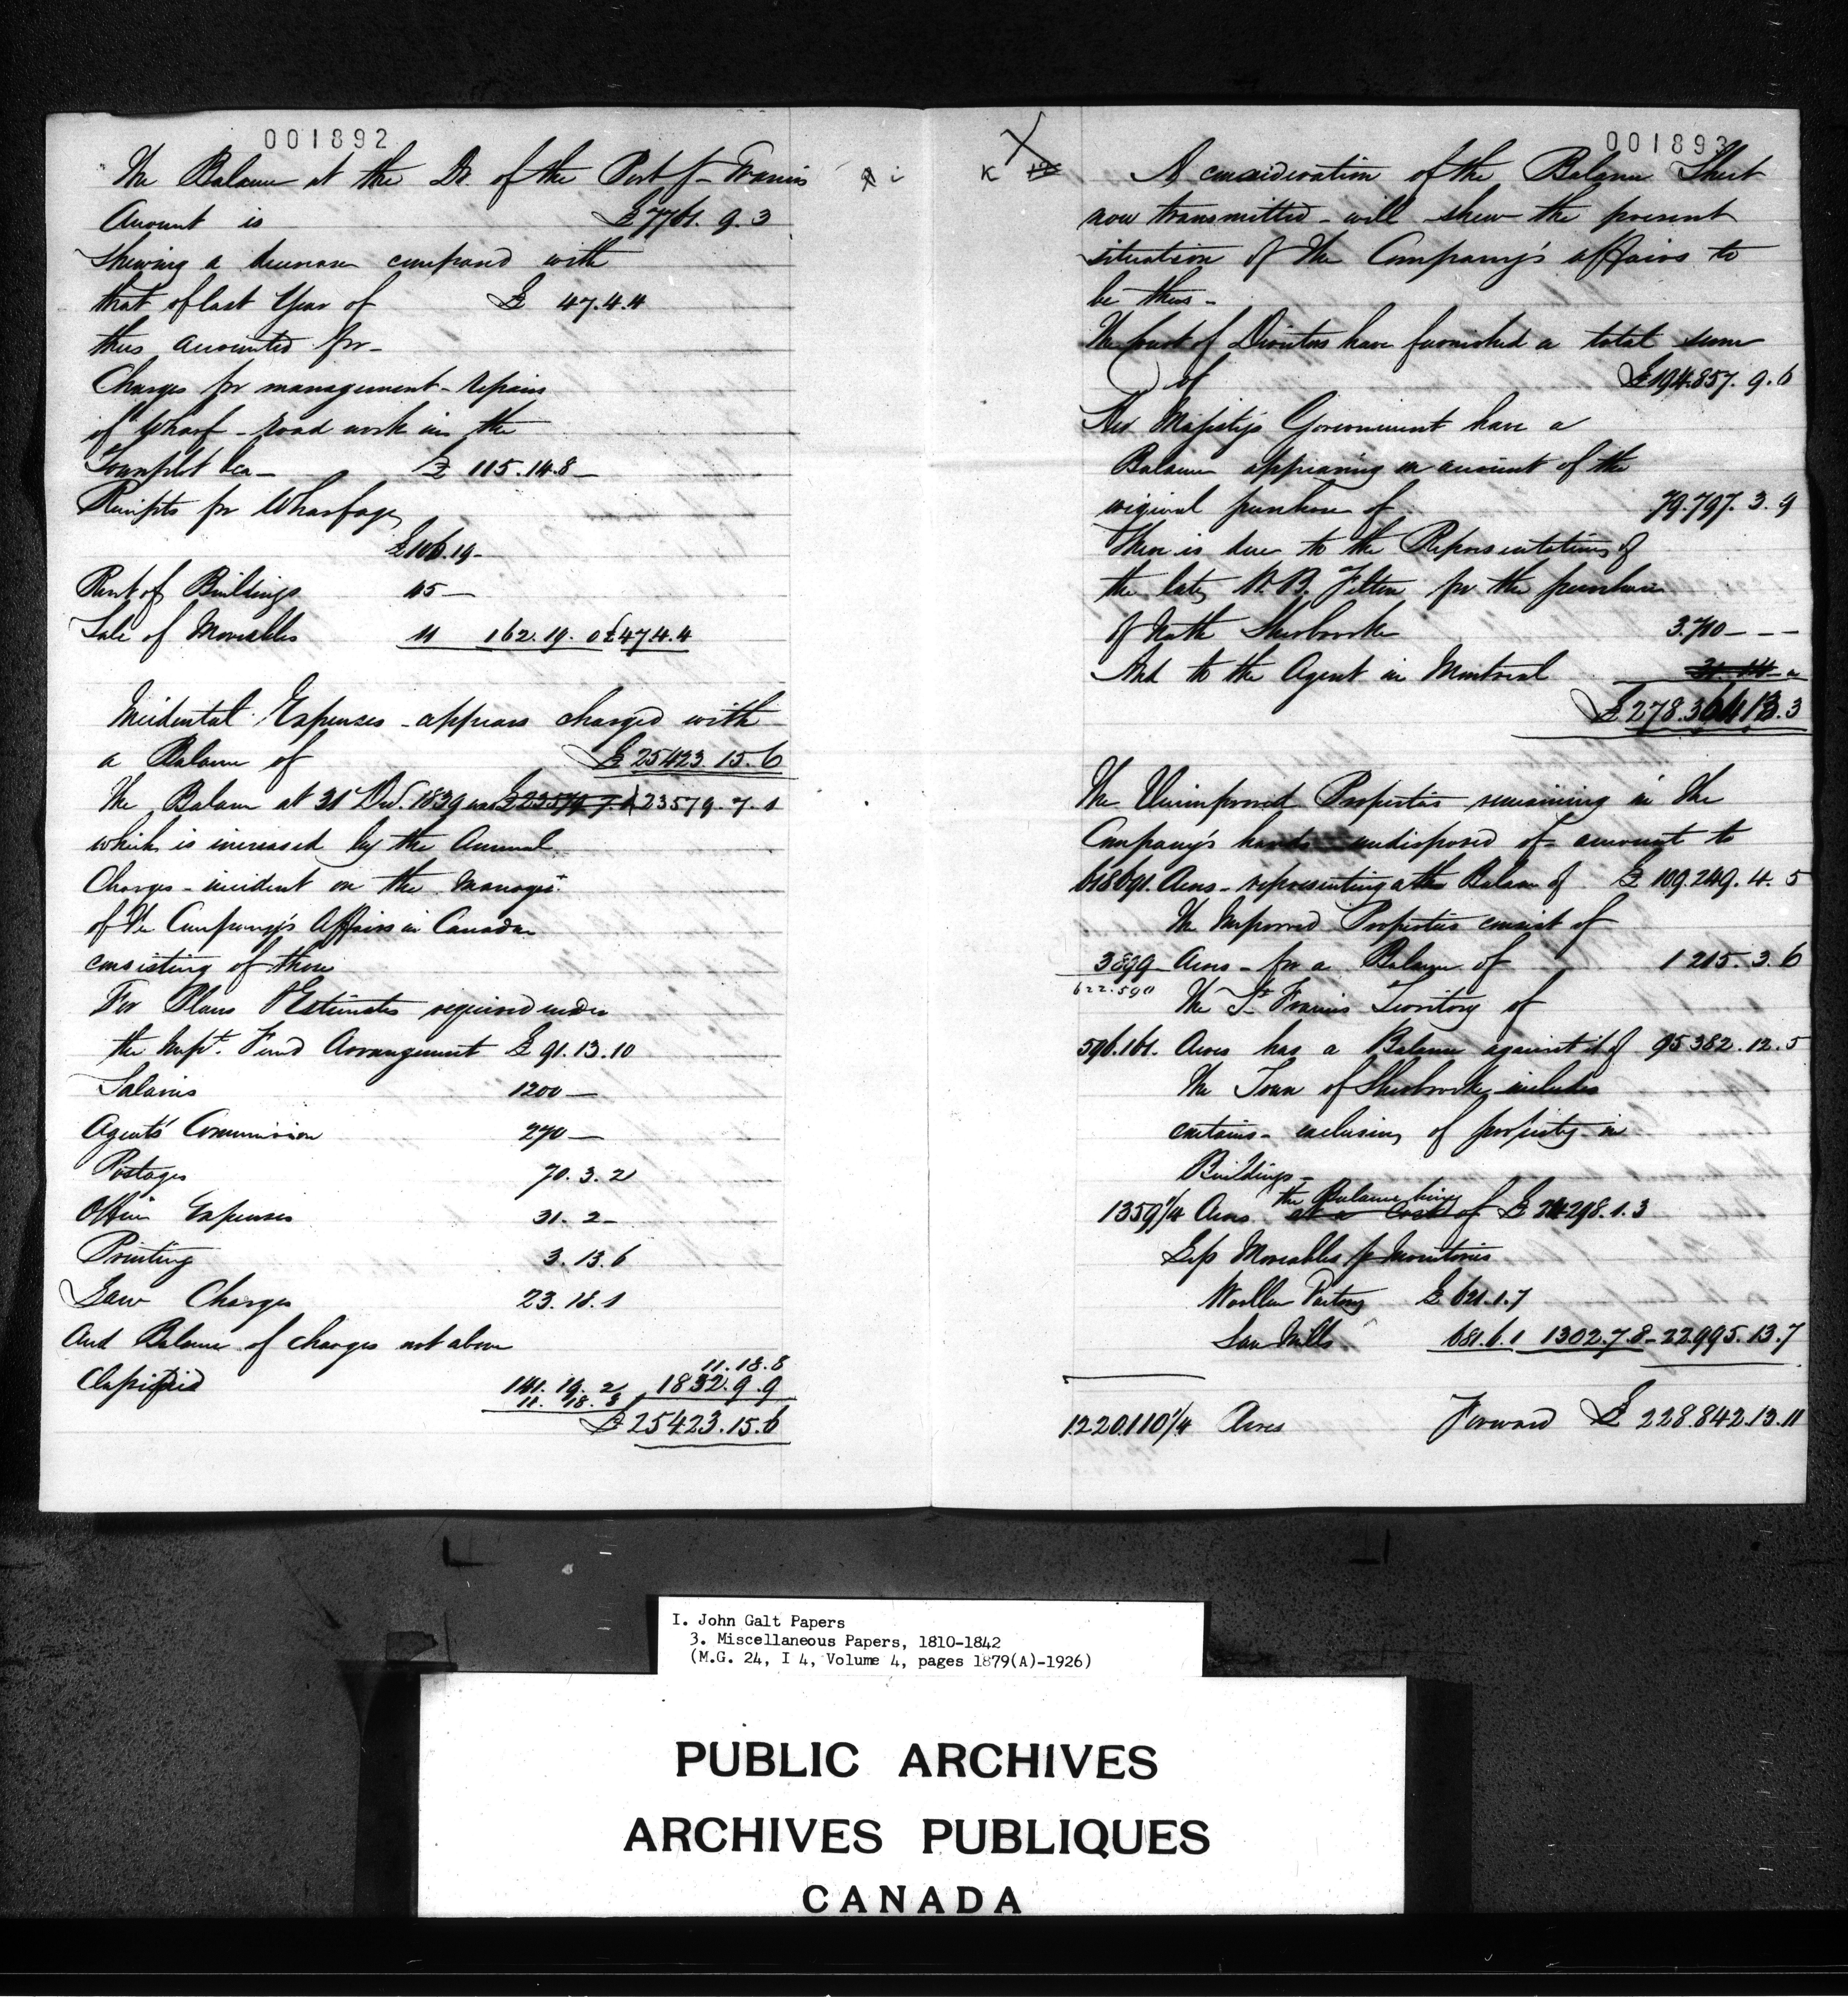 001892
The Balance at the Dr. of the Port St Francis
Account is £7761. 9. 3
Shewing a decrease compared with
that of last Year of £ 47. 4. 4
thus accounted for -
Charges for management - repairs
of Wharf - road work in the
Townplot &ca - £ 115. 14. 8 -
Receipts for Wharfage
£106. 19 -
Rent of Buildings 45 -
Sale of Moveables 11 162. 19. 0 £47. 4. 4
Incidental Expenses - appears charged with
a Balance of £25423. 15. 6
The Balance at 31 Decr. 1839 was £23579. 7. 1 23579. 7. 1
which is increased by the Annual
Charges - incident on the Managet.
of the Company's Affairs in Canada
consisting of these
For Plans & Estimates required under
the Impt. Fund Arrangement £ 91. 13. 10
Salaries 1200 -
Agents' Commission 270 -
Postages 70. 3. 2
Office Expenses 31. 2 -
Printing 3. 13. 6
Law Charges 23. 18. 1
And Balance of charges not above
11. 18. 8
Classified 141. 19. 2 1832. 9. 9
11. 18. 8
£25423. 15. 6
001893
K
A consideration of the Balance Sheet
now transmitted - will shew the present
situation of the Company's affairs to
be thus -
The Court of Directors have furnished a total sum
of £194.857. 9. 6
Her Majesty's Government have a
Balance appearing on account of the
original purchase of 79.797. 3. 9
There is due to the Representatives of
the late W. B. Felton for the purchase
of North Sherbrooke 3.710 - - -
And to the Agent in Montreal
£278.364.13.3
The Unimproved Properties remaining in the
Company's hands undisposed of - amount to
618691. Acres - representing a the Balance of £ 109.249. 4. 5
The Improved Properties consist of
3899 Acres - for a Balance of 1 215. 3. 6
622.590
The St. Francis Territory of
596.161. Acres has a Balance against it of 95 382. 12. 5
The Town of Sherbrooke includes
contains - exclusive of property in
Buildings -
the Balance being
1359 1/4 Acres at a cost of £ 24298. 1. 3
Less Moveables pr Inventories
Woollen Factory £ 621. 1. 7
Saw Mills 681. 6. 1 1302. 7. 8 - 22.995. 13. 7
1.220.110 1/4 Acres Forward £ 228.842. 13. 11
I. John Galt Papers
3. Miscellaneous Papers, 1810-1842
(M.G. 24, I 4, Volume 4, pages 1879(A)-1926)
PUBLIC ARCHIVES
ARCHIVES PUBLIQUES
CANADA